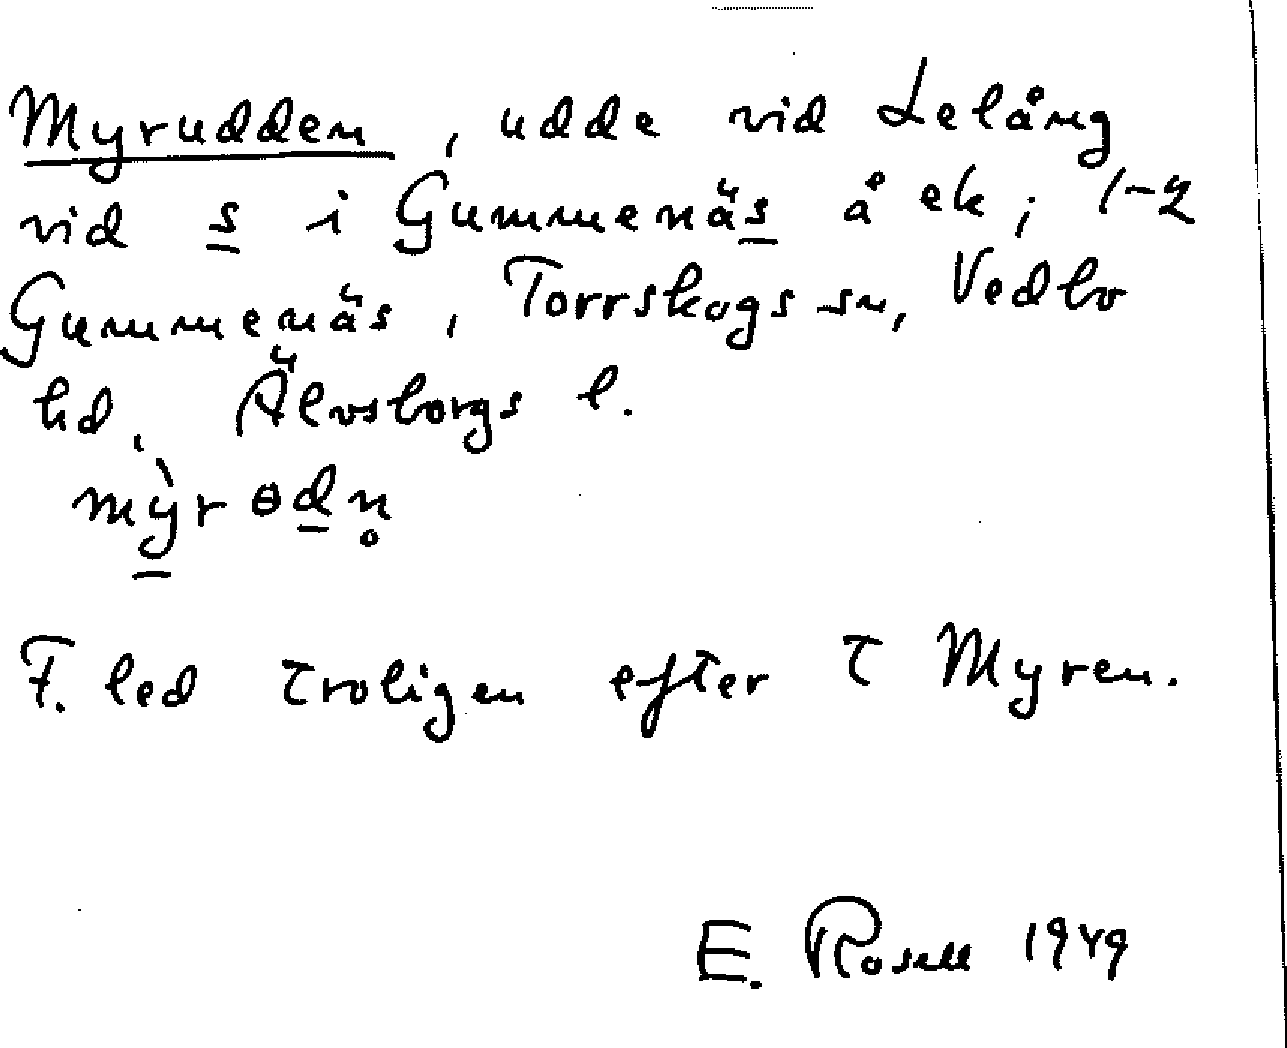 Myrudden, udde vid Lelång
vid s i Gummenäs å ek; 1-2
Gummenäs, Torrskogs sn, Vedbo
hd, Älvsborgs l.
mỳrɵdn̥
F. led troligen efter τ Myren.
E. Rosell 1949